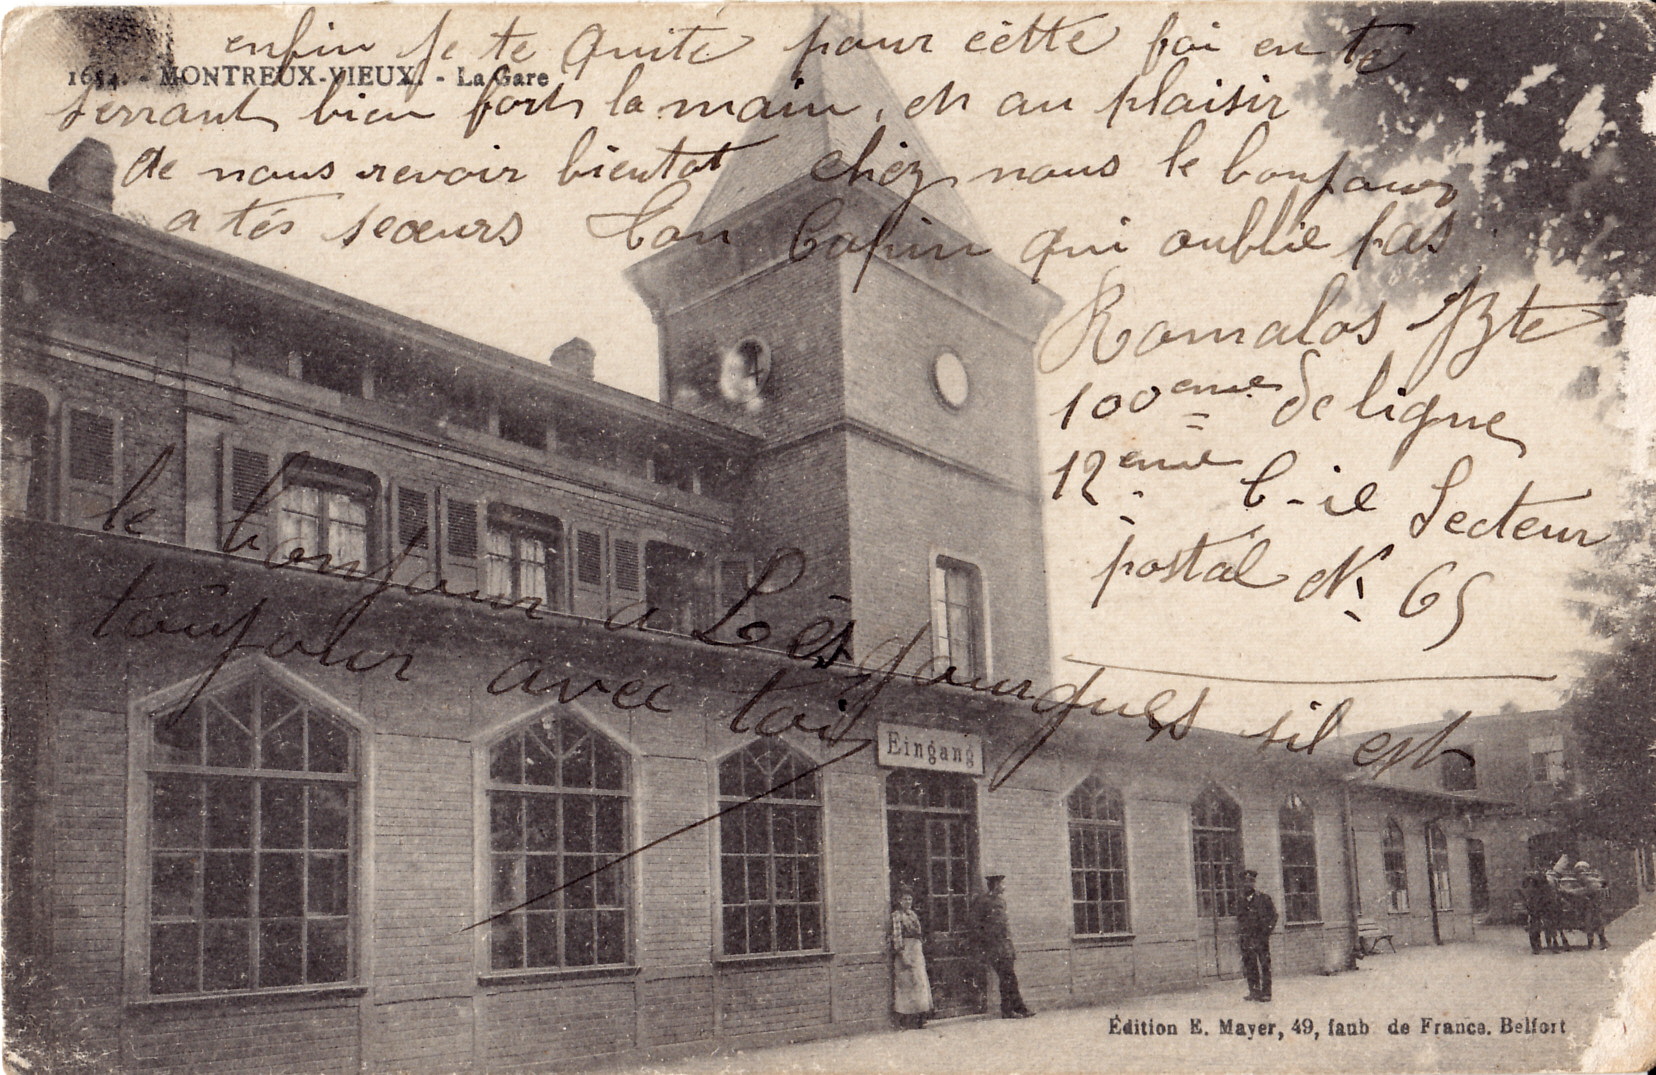 enfin je te quitè pour cètte foi en te
1654. - MONTREUX-VIEUX. - La Gare
serrant bien fort la main, et au plaisir
de nous revoir bientot chéz nous le bonjour
a tés sœurs Ton Copin qui oublie pas
Romalos Bte
100eme de ligne
12eme C-ie Secteur
postal N. 65
le bonjour a Lèsgourgues sil est
toujour avec toi
Eingang
Édition E. Mayer, 49, faub de France. Belfort